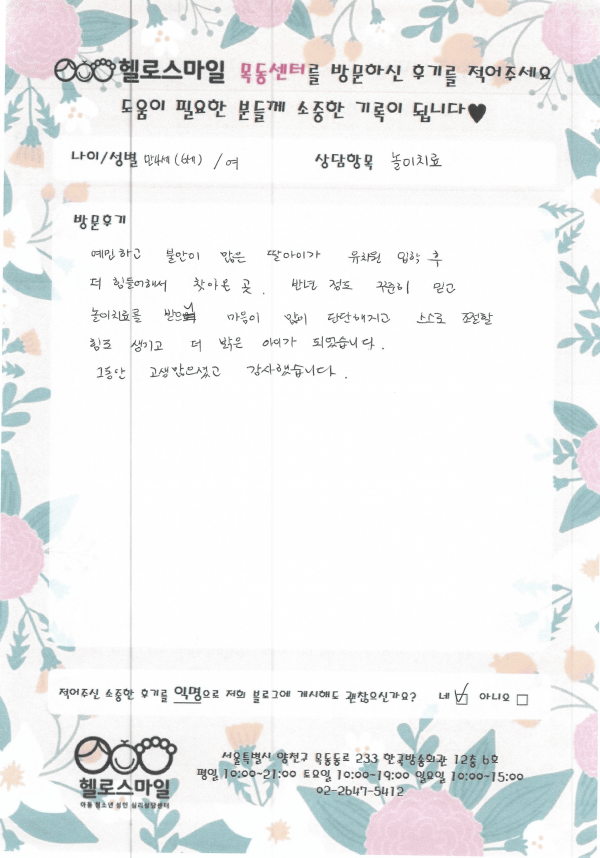 헬로스마일 목동센터를 방문하신 후기를 적어주세요
도움이 필요한 분들께 소중한 기록이 됩니다♥
나이/성별 만4세(6세) / 여 상담항목 놀이치료
방문후기
예민하고 불안이 많은 딸아이가 유치원 입학 후
더 힘들어해서 찾아온 곳. 반년 정도 꾸준히 믿고
놀이치료를 받으니 마음이 많이 단단해지고 스스로 조절할
힘도 생기고 더 밝은 아이가 되었습니다.
그동안 고생많으셨고 감사했습니다.
적어주신 소중한 후기를 익명으로 저희 블로그에 게시해도 괜찮으신가요? 네 ☑ 아니오 □
헬로스마일
아동 청소년 성인 심리상담센터
서울특별시 양천구 목동동로 233 한국방송회관 12층 6호
평일 10:00~21:00 토요일 10:00~19:00 일요일 10:00~15:00
02-2647-5412